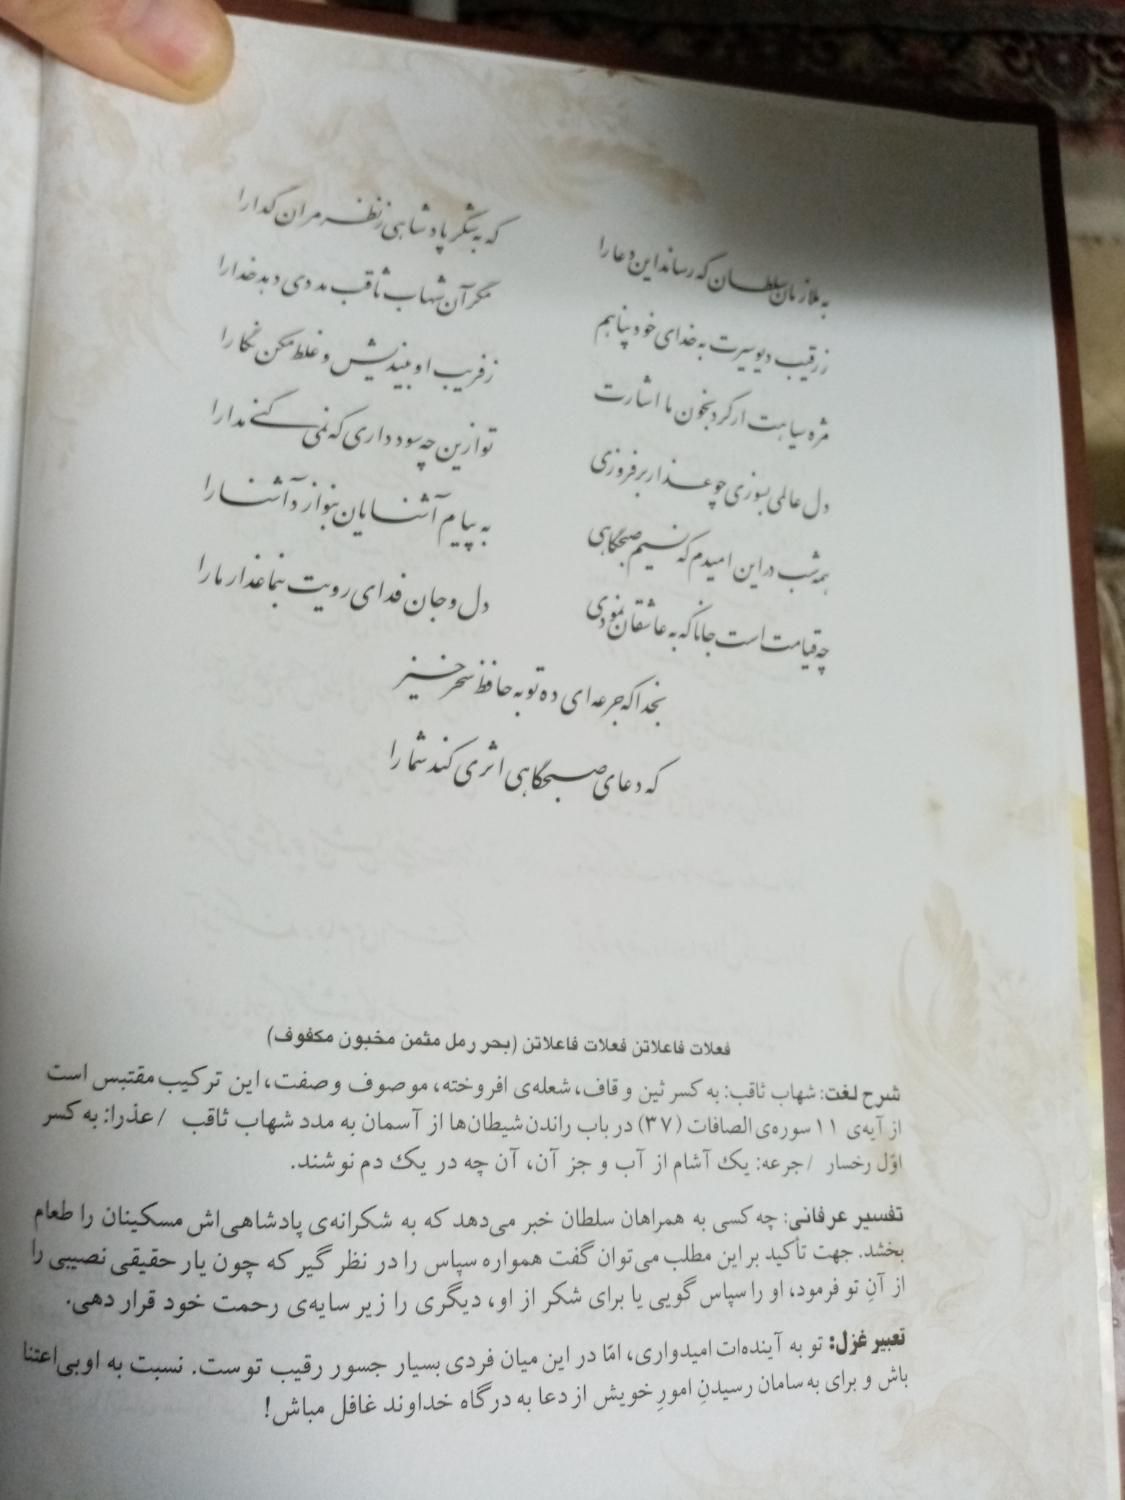 به ملازمان سلطان که رساند این دعا را
که به شکر پادشاهی ز نظر مران گدا را
ز رقیب دیوسیرت به خدای خود پناهم
مگر آن شهاب ثاقب مددی دهد خدا را
مژه سیاهت ار کرد بخون ما اشارت
ز فریب او بیندیش و غلط مکن نگارا
دل عالمی بسوزی چو عذار برفروزی
تو ازین چه سود داری که نمی کنی مدارا
همه شب در این امیدم که نسیم صبحگاهی
به پیام آشنایان بنوازد آشنا را
چه قیامت است جانا که به عاشقان نمودی
دل و جان فدای رویت بنما عذار ما را
بخدا که جرعه ای ده تو به حافظ سحرخیز
که دعای صبحگاهی اثری کند شما را
فعلات فاعلاتن فعلات فاعلاتن (بحر رمل مثمن مخبون مکفوف)
شرح لغت: شهاب ثاقب: به کسر ثین و قاف، شعله‌ی افروخته، موصوف وصفت، این ترکیب مقتبس است
از آیه‌ی ۱۱ سوره‌ی الصافات (۳۷) در باب راندن شیطان‌ها از آسمان به مدد شهاب ثاقب / عذرا: به کسر
اوّل رخسار / جرعه: یک آشام از آب و جز آن، آن چه در یک دم نوشند.
تفسیر عرفانی: چه کسی به همراهان سلطان خبر می‌دهد که به شکرانه‌ی پادشاهی‌اش مسکینان را طعام
بخشد. جهت تأکید بر این مطلب می‌توان گفت همواره سپاس را در نظر گیر که چون یار حقیقی نصیبی را
از آنِ تو فرمود، او را سپاس گویی یا برای شکر از او، دیگری را زیر سایه‌ی رحمت خود قرار دهی.
تعبیر غزل: تو به آینده‌ات امیدواری، امّا در این میان فردی بسیار جسور رقیب توست. نسبت به او بی‌اعتنا
باش و برای به سامان رسیدنِ امورِ خویش از دعا به درگاه خداوند غافل مباش!